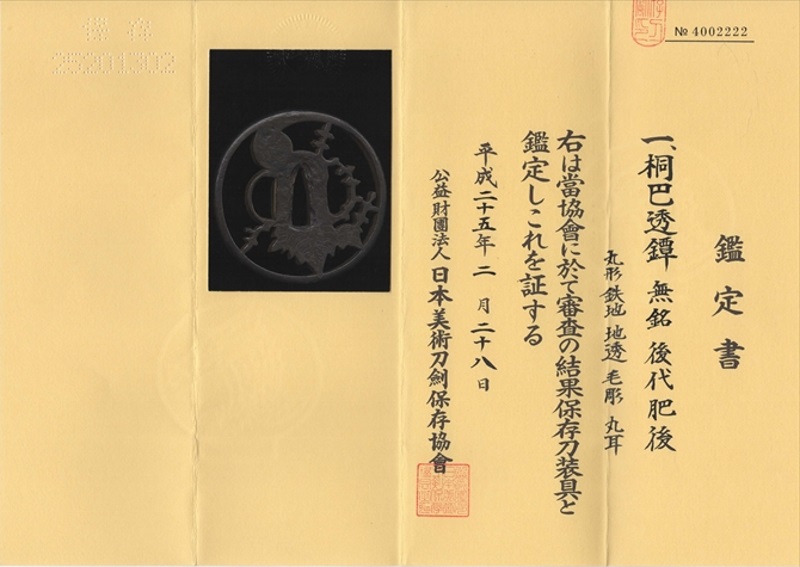 № 4002222
鑑定書
一、桐巴透鐔 無銘 後代肥後
丸形 鉄地 地透 毛彫 丸耳
右は當協會に於て審査の結果保存刀装具と
鑑定しこれを証する
平成二十五年二月二十八日
公益財團法人 日本美術刀劍保存協會
保存
25201302